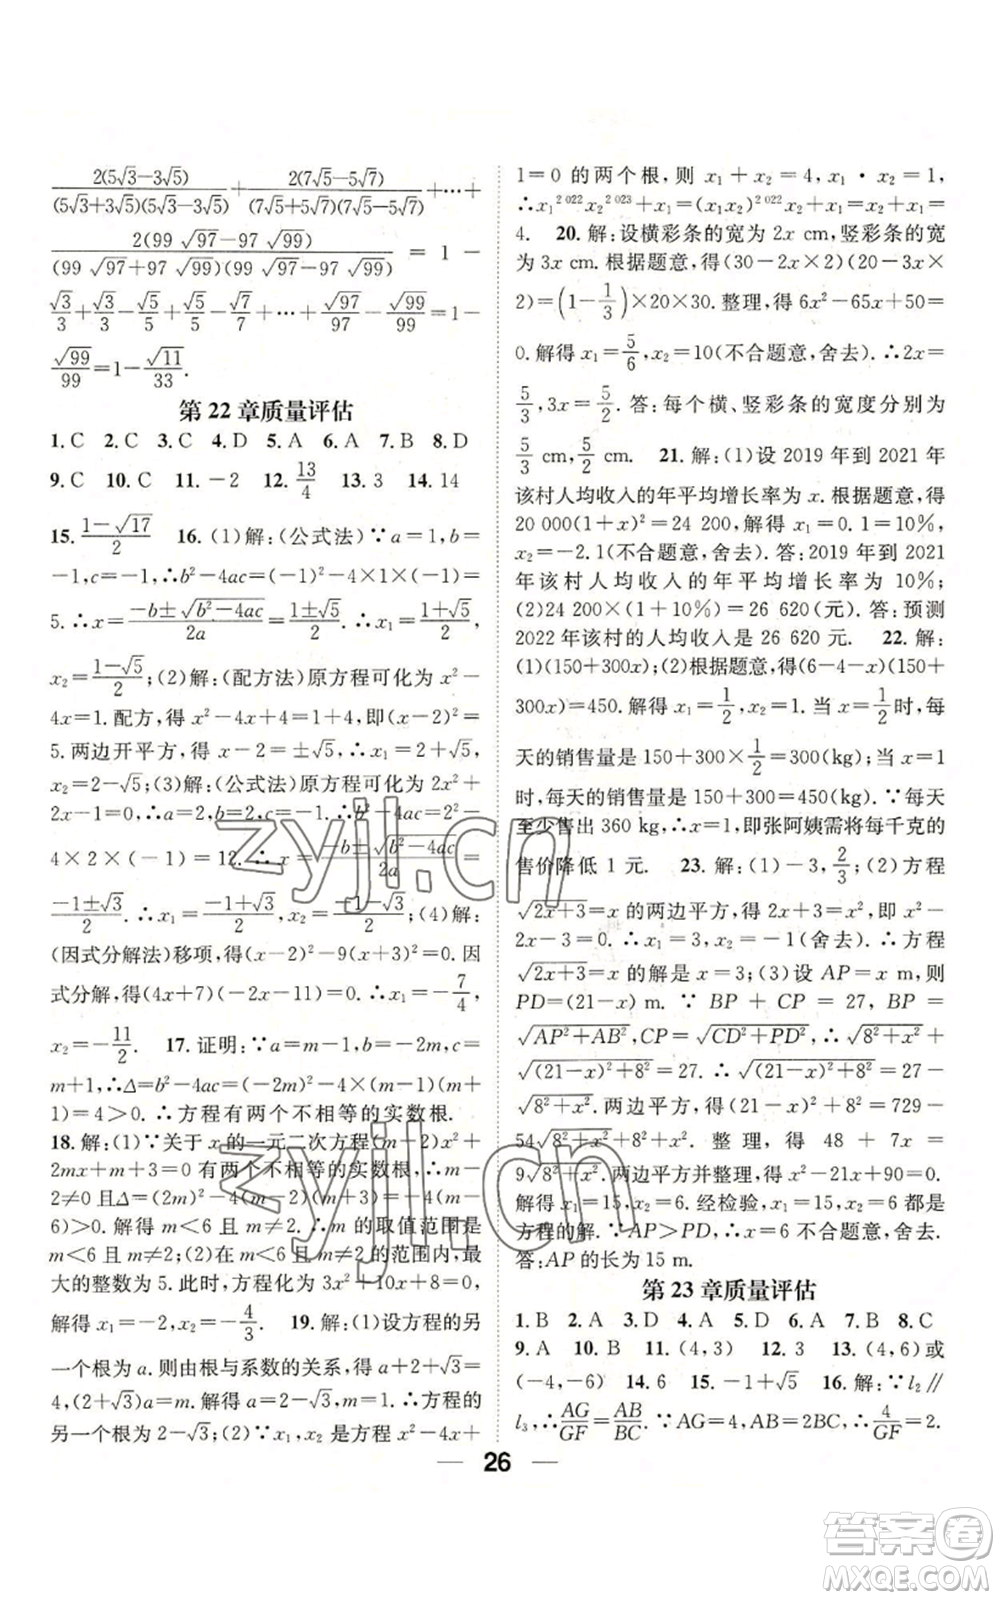 2(5√3−3√5)/(5√3+3√5)(5√3−3√5)+2(7√5−5√7)/(7√5+5√7)(7√5−5√7)+…+
2(99√97−97√99)/(99√97+97√99)(99√97−97√99)=1−
√3/3+√3/3−√5/5+√5/5−√7/7+…+√97/97−√99/99=1−
√99/99=1−√11/33.
第22章质量评估
1.C 2.C 3.C 4.D 5.A 6.A 7.B 8.D
9.C 10.C 11.−2 12.13/4 13.3 14.14
15.(1−√17)/2 16.(1)解:(公式法)∵a=1,b=
−1,c=−1,∴b²−4ac=(−1)²−4×1×(−1)=
5.∴x=(−b±√(b²−4ac))/2a=(1±√5)/2.∴x₁=(1+√5)/2,
x₂=(1−√5)/2;(2)解:(配方法)原方程可化为x²−
4x=1.配方,得x²−4x+4=1+4,即(x−2)²=
5.两边开平方,得x−2=±√5,∴x₁=2+√5,
x₂=2−√5;(3)解:(公式法)原方程可化为2x²+
2x−1=0.∴a=2,b=2,c=−1.∴b²−4ac=2²−
4×2×(−1)=12.∴x=(−b±√(b²−4ac))/2a=
(−1±√3)/2.∴x₁=(−1+√3)/2,x₂=(−1−√3)/2;(4)解:
(因式分解法)移项,得(x−2)²−9(x+3)²=0.因
式分解,得(4x+7)(−2x−11)=0.∴x₁=−7/4,
x₂=−11/2. 17.证明:∵a=m−1,b=−2m,c=
m+1,∴Δ=b²−4ac=(−2m)²−4×(m−1)(m+
1)=4>0.∴方程有两个不相等的实数根.
18.解:(1)∵关于x的一元二次方程(m−2)x²+
2mx+m+3=0有两个不相等的实数根,∴m−
2≠0且Δ=(2m)²−4(m−2)(m+3)=−4(m−
6)>0.解得m<6且m≠2.∴m的取值范围是
m<6且m≠2;(2)在m<6且m≠2的范围内,最
大的整数为5.此时,方程化为3x²+10x+8=0.
解得x₁=−2,x₂=−4/3. 19.解:(1)设方程的另
一个根为a.则由根与系数的关系,得a+2+√3=
4,(2+√3)a=m.解得a=2−√3,m=1.∴方程的
另一个根为2−√3;(2)∵x₁,x₂是方程x²−4x+
1=0的两个根,则x₁+x₂=4,x₁·x₂=1,
∴x₁²⁰²²x₂²⁰²³+x₁=(x₁x₂)²⁰²²x₂+x₁=x₂+x₁=
4. 20.解:设横彩条的宽为2x cm,竖彩条的宽
为3x cm.根据题意,得(30−2x×2)(20−3x×
2)=(1−1/3)×20×30.整理,得6x²−65x+50=
0.解得x₁=5/6,x₂=10(不合题意,舍去).∴2x=
5/3,3x=5/2.答:每个横、竖彩条的宽度分别为
5/3 cm,5/2 cm. 21.解:(1)设2019年到2021年
该村人均收入的年平均增长率为x.根据题意,得
20 000(1+x)²=24 200,解得x₁=0.1=10%,
x₂=−2.1(不合题意,舍去).答:2019年到2021
年该村人均收入的年平均增长率为10%;
(2)24 200×(1+10%)=26 620(元).答:预测
2022年该村的人均收入是26 620元. 22.解:
(1)(150+300x);(2)根据题意,得(6−4−x)(150+
300x)=450.解得x₁=1/2,x₂=1.当x=1/2时,每
天的销售量是150+300×1/2=300(kg);当x=1
时,每天的销售量是150+300=450(kg).∵每天
至少售出360 kg,∴x=1,即张阿姨需将每千克的
售价降低1元. 23.解:(1)−3,2/3;(2)方程
√(2x+3)=x的两边平方,得2x+3=x²,即x²−
2x−3=0.∴x₁=3,x₂=−1(舍去).∴方程
√(2x+3)=x的解是x=3;(3)设AP=x m,则
PD=(21−x) m.∵BP+CP=27,BP=
√(AP²+AB²),CP=√(CD²+PD²),∴√(8²+x²)+
√((21−x)²+8²)=27.∴√((21−x)²+8²)=27−
√(8²+x²).两边平方,得(21−x)²+8²=729−
54√(8²+x²)+8²+x².整理,得48+7x=
9√(8²+x²).两边平方并整理,得x²−21x+90=0.
解得x₁=15,x₂=6.经检验,x₁=15,x₂=6都是
方程的解.∵AP>PD,∴x=6不合题意,舍去.
答:AP的长为15 m.
第23章质量评估
1.B 2.A 3.D 4.D 5.D 6.A 7.B 8.C
9.A 10.B 11.(4,3) 12.3 13.(4,6)或
(−4,−6) 14.6 15.−1+√5 16.解:∵l₂∥
l₃,∴AG/GF=AB/BC.∵AG=4,AB=2BC,∴4/GF=2.
26
zyjl.cn
zyjl.cn
答案圈
MXQE.COM